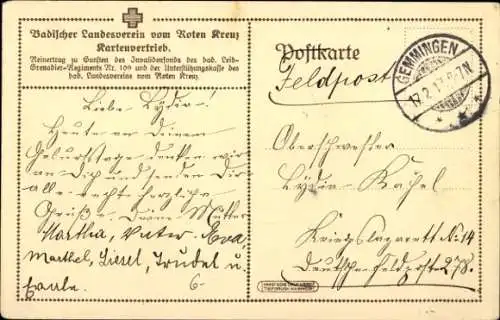 Badischer Landesverein vom Roten Kreuz
Kartenvertrieb.
Reinertrag zu Gunsten des Invalidenfonds des bad. Leib-
Grenadier-Regiments Nr. 109 und der Unterstützungskasse des
bad. Landesvereins vom Roten Kreuz.
Postkarte
Feldpost
GEMMINGEN
17.2.17. 7N
Liebe Lydia!
Heute an Deinem
Geburtstage denken wir
an Dich und senden Dir
alle recht herzliche
Grüße. Deine Mutter
Martha, Vater. Eva,
Marthel, Liesel, Trudel u.
Oberschwester
Lydia Kachel
Kriegslazarett No: 14
Deutsche Feldpost 278.